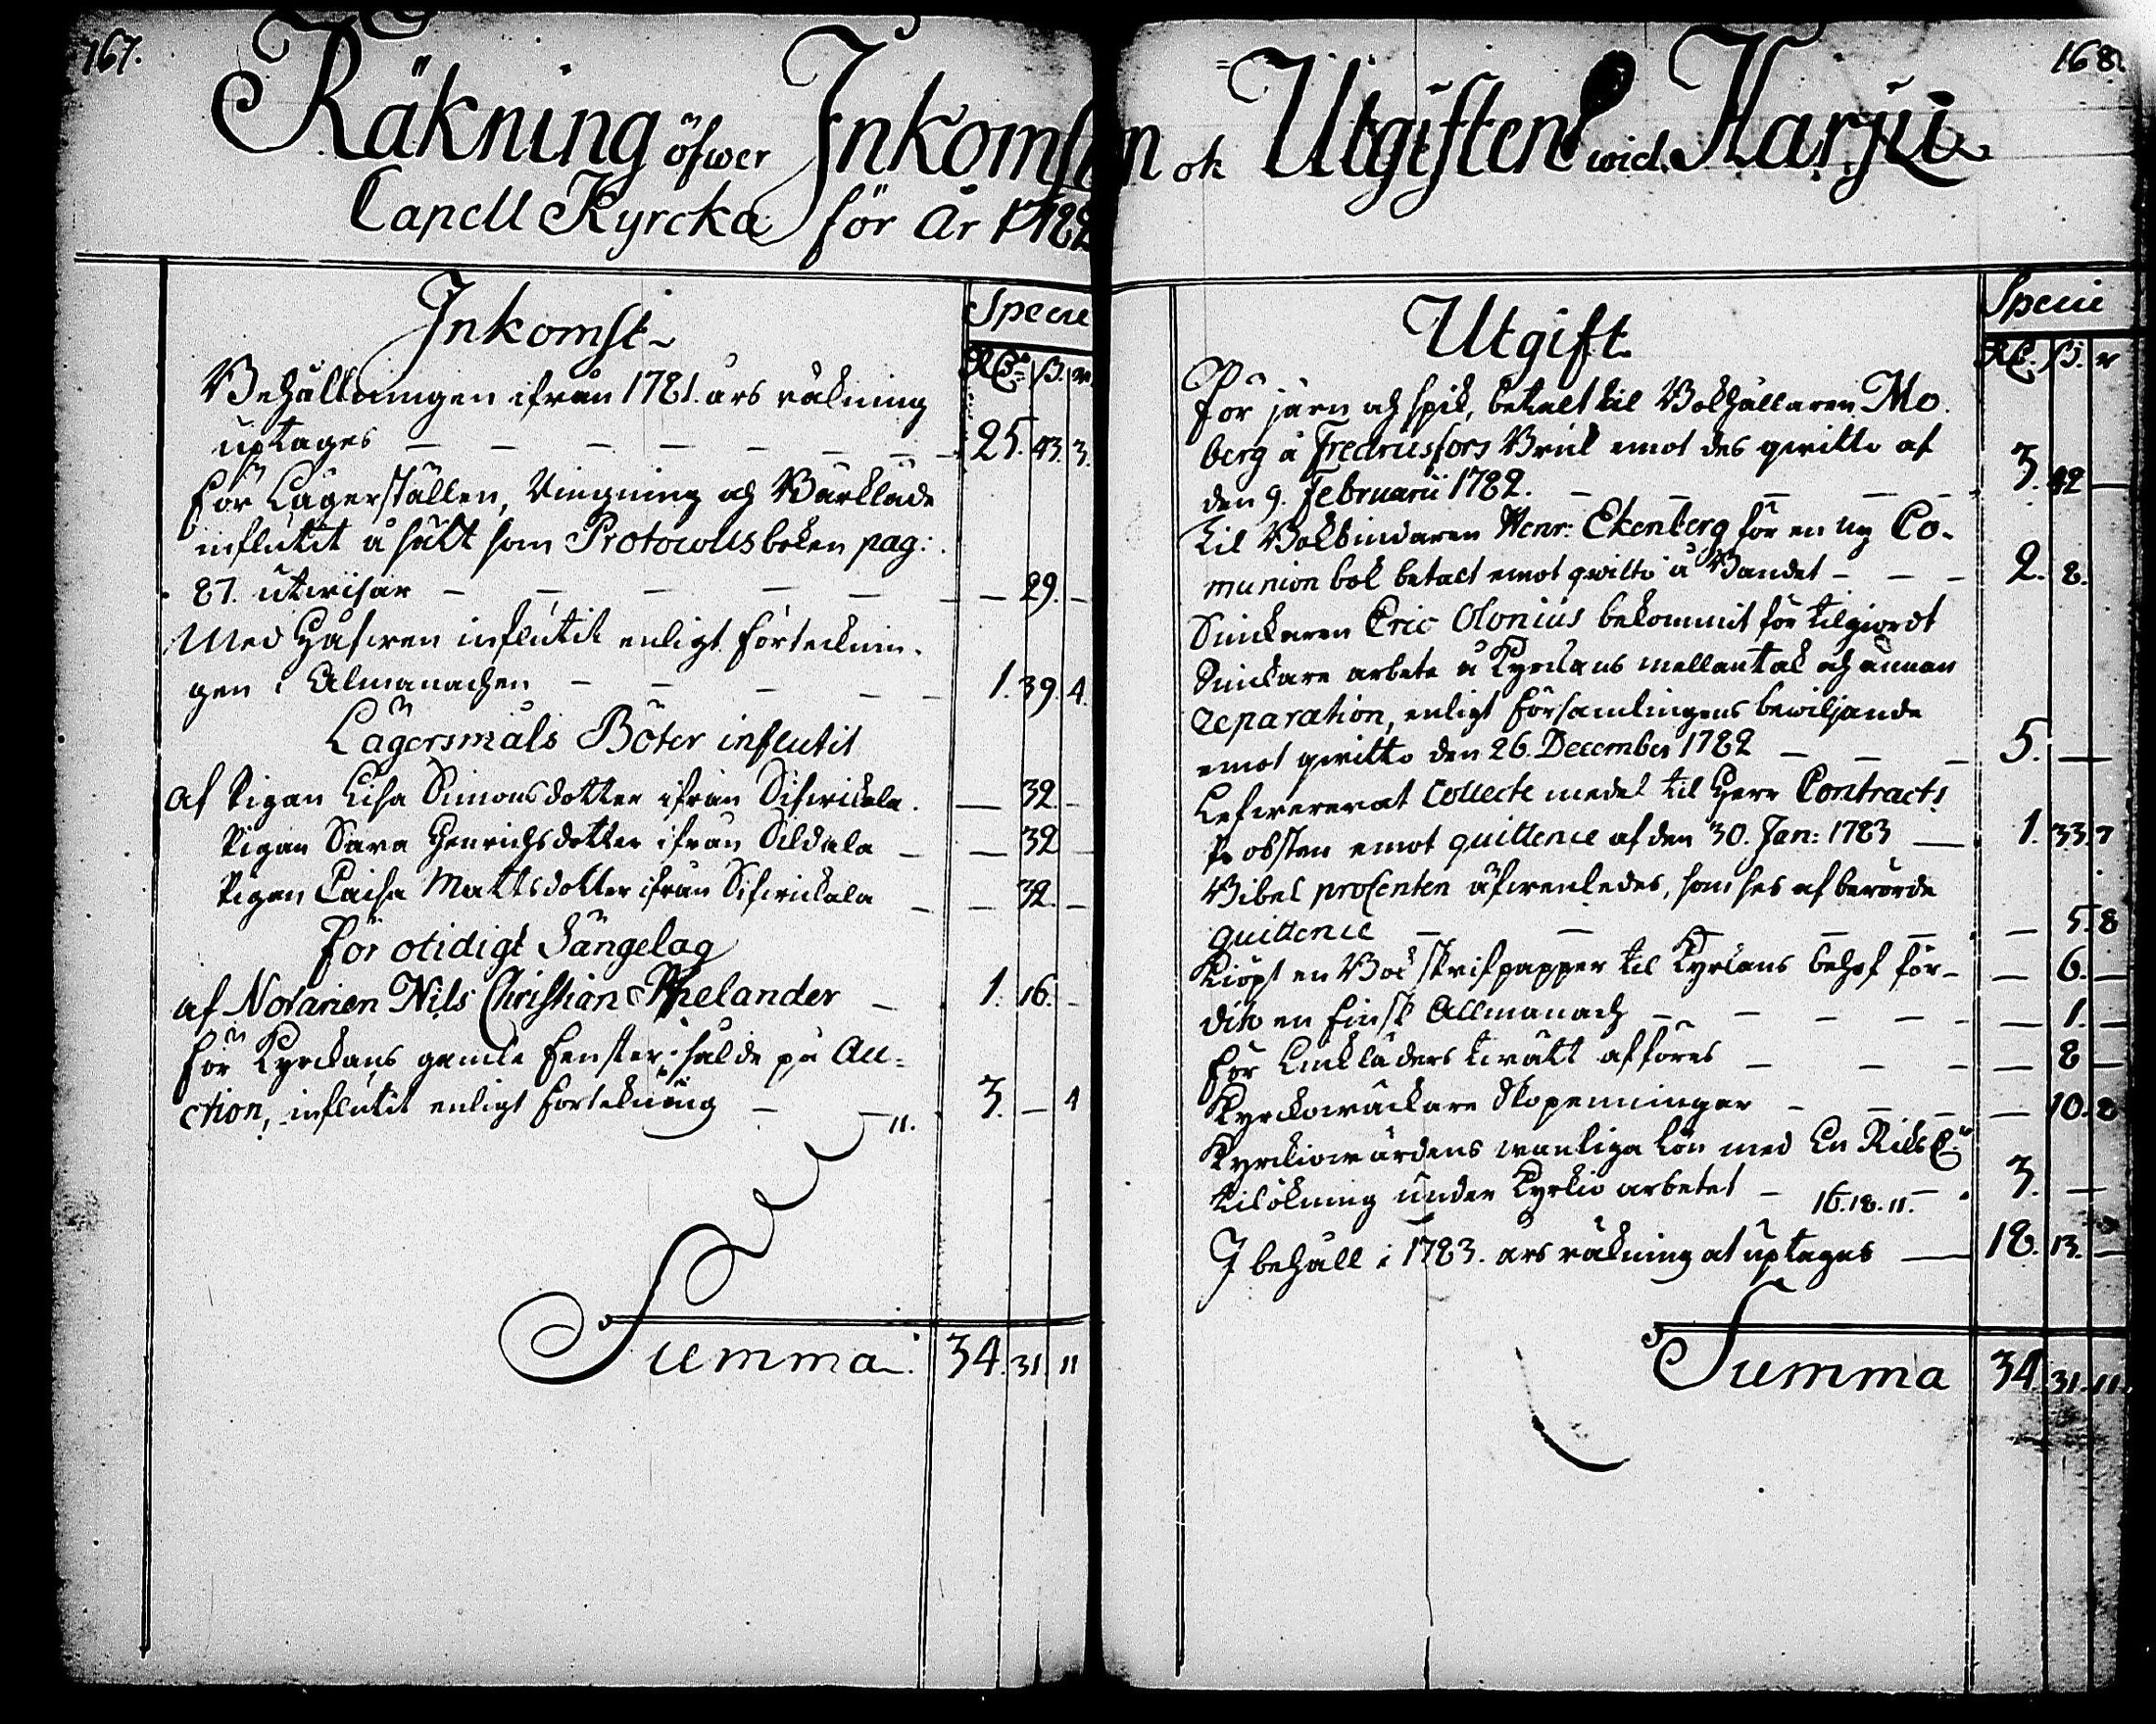 167.
Räkning öfwer Inkomsten ok Utgiften wid Karju
Capell Kyrcka för år 1782
Inkomst
Specie
Rd. ß. r.
Behållningen ifrån 1781. års räkning
uptages — 25. 43. 3.
För Lägerställen, Ringning och Bårkläde
influtit å sätt som Protocollsboken pag:
87. utwisar — 29. —
Med Håfwen influtit enligt förtecknin-
gen i Almanachen — 1. 39. 4.
Lägersmåls Böter influtit
af Pigan Lisa Simonsdotter ifrån — 32. —
Pigan Sara Henrichsdotter ifrån — 32 —
Pigan Caisa Mattsdotter ifrån — 32. —
För otidigt Sängelag
af Notarien Nils Christian — 1. 16. —
För Kyrckans gamla Fenster, sålde på Au-
ction, influtit enligt förtekning — 3. — 4
11.
Summa 34. 31. 11
168.
Utgift
Specie
Rd. ß. r
För järn och spik, betalt til Bokhållaren Mo-
berg å Fredricsfors Bruk emot des qvitto af
den 9. Februarii 1782. — 3. 42 —
Til Bokbindaren Henr: Ekenberg för en ny Co-
munion bok betalt emot qvitto å Bandet — 2. 8.
Snickaren Eric Olonius bekommit för tilgiordt
Snickare arbete å Kyrckans mellantak och annan
reparation, enligt Församlingens bewiljande
emot qvitto den 26. December 1782 — 5. —
Lefwererat Collecte medel til Herr Contracts
Probsten emot quittence af den 30. Jan: 1783 — 1. 33. 7
Bibel procenten äfwenledes, som ses af berörde
quittence — 5. 8
Kiöpt en Bok skrifpapper til Kyrckans behof för — 6. —
dito en Finsk Allmanach — 1. —
För Linkläders twätt afföres — 8 —
Kyrckowäckare Skopenningar — 10. 8
Kyrckiowärdens wanliga Lön med En Riks
tilökning under Kyrckio arbetet — 3. —
16. 18. 11.
I behåll i 1783. års räkning at uptagas — 18. 13. —
Summa 34 31. 11.